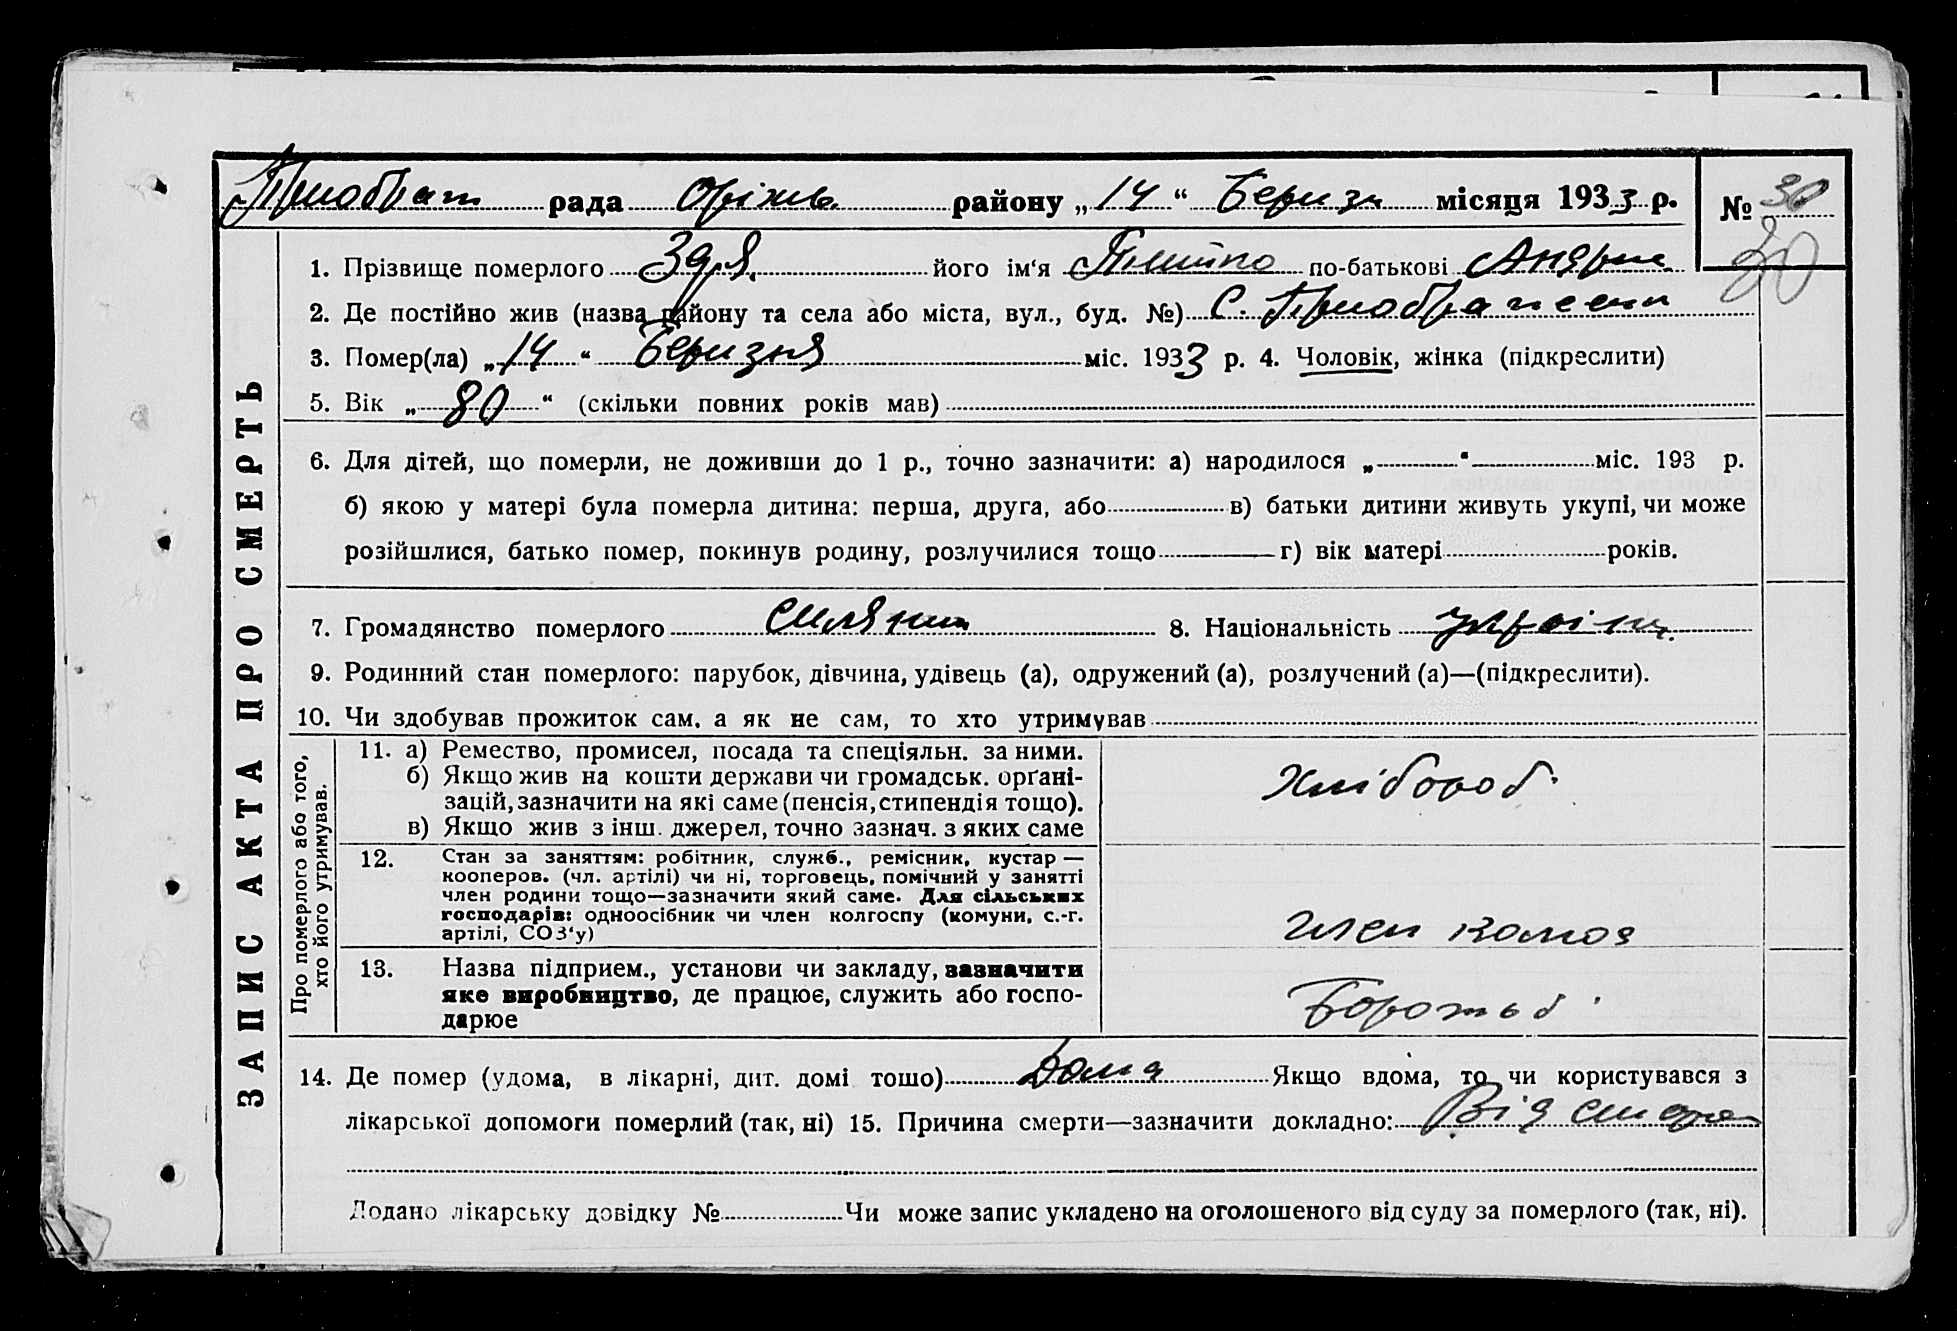 Преображ рада Оріхів району „14“ Березн місяця 1933 р. № 30
30
1. Прізвище померлого його ім‘я по-батькові
2. Де постійно жив (назва району та села або міста, вул., буд. №) С. Преображенн
3. Помер(ла) „14“ Березня міс. 1933 р. 4. Чоловік, жінка (підкреслити)
5. Вік „80“ (скільки повних років мав)
6. Для дітей, що померли, не доживши до 1 р., точно зазначити: а) народилося „ “ міс. 193 р.
б) якою у матері була померла дитина: перша, друга, або в) батьки дитини живуть укупі, чи може
розійшлися, батько помер, покинув родину, розлучилися тощо г) вік матері років.
7. Громадянство померлого селянин 8. Національність україн.
9. Родинний стан померлого: парубок, дівчина, удівець (а), одружений (а), розлучений (а)—(підкреслити).
10. Чи здобував прожиток сам, а як не сам, то хто утримував
11. а) Ремество, промисел, посада та спеціяльн. за ними.
б) Якщо жив на кошти держави чи громадськ. орґані-
зацій, зазначити на які саме (пенсія, стипендія тощо).
в) Якщо жив з інш. джерел, точно зазнач. з яких саме
Хлібороб
12. Стан за заняттям: робітник, служб., ремісник, кустар —
кооперов. (чл. артілі) чи ні, торговець, помічний у занятті
член родини тощо—зазначити який саме. Для сільських
господарів: одноосібник чи член колгоспу (комуни, с.-г.
артілі, СОЗ‘у)
член
13. Назва підприєм., установи чи закладу, зазначити
яке виробництво, де працює, служить або госпо-
дарює
Боротьб
14. Де помер (удома, в лікарні, дит. домі тощо) Дома Якщо вдома, то чи користувався з
лікарської допомоги померлий (так, ні) 15. Причина смерти—зазначити докладно: Від
Додано лікарську довідку № Чи може запис укладено на оголошеного від суду за померлого (так, ні).
Про померлого або того,
хто його утримував.
ЗАПИС АКТА ПРО СМЕРТЬ